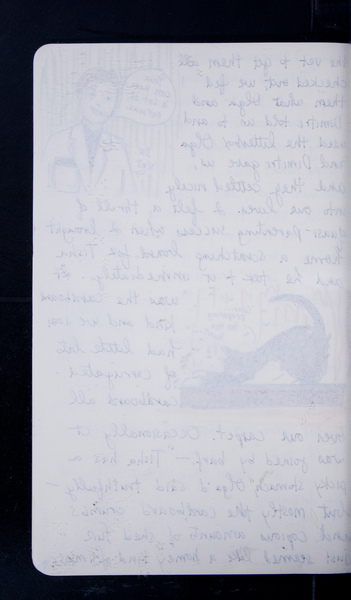 the vet & get them all
checked out, we fed
them what Olga and
Dimitri told us to and
used the litterbox Olga
and Dimitri gave us,
and they settled nicely
into our lives. I felt a thrill of
quasi-parenting success when I brought
home a scratching board for Tisha
and he took to it immediately. It
was the cardboard
kind and we soon
had little bits
of corrugated
cardboard all
over our carpet. Occasionally it
was joined by barf — Tisha has a
picky stomach, Olga'd said truthfully —
but mostly the cardboard crumbs
and copious amounts of shed fur
just seemed like a homey kind of mess,